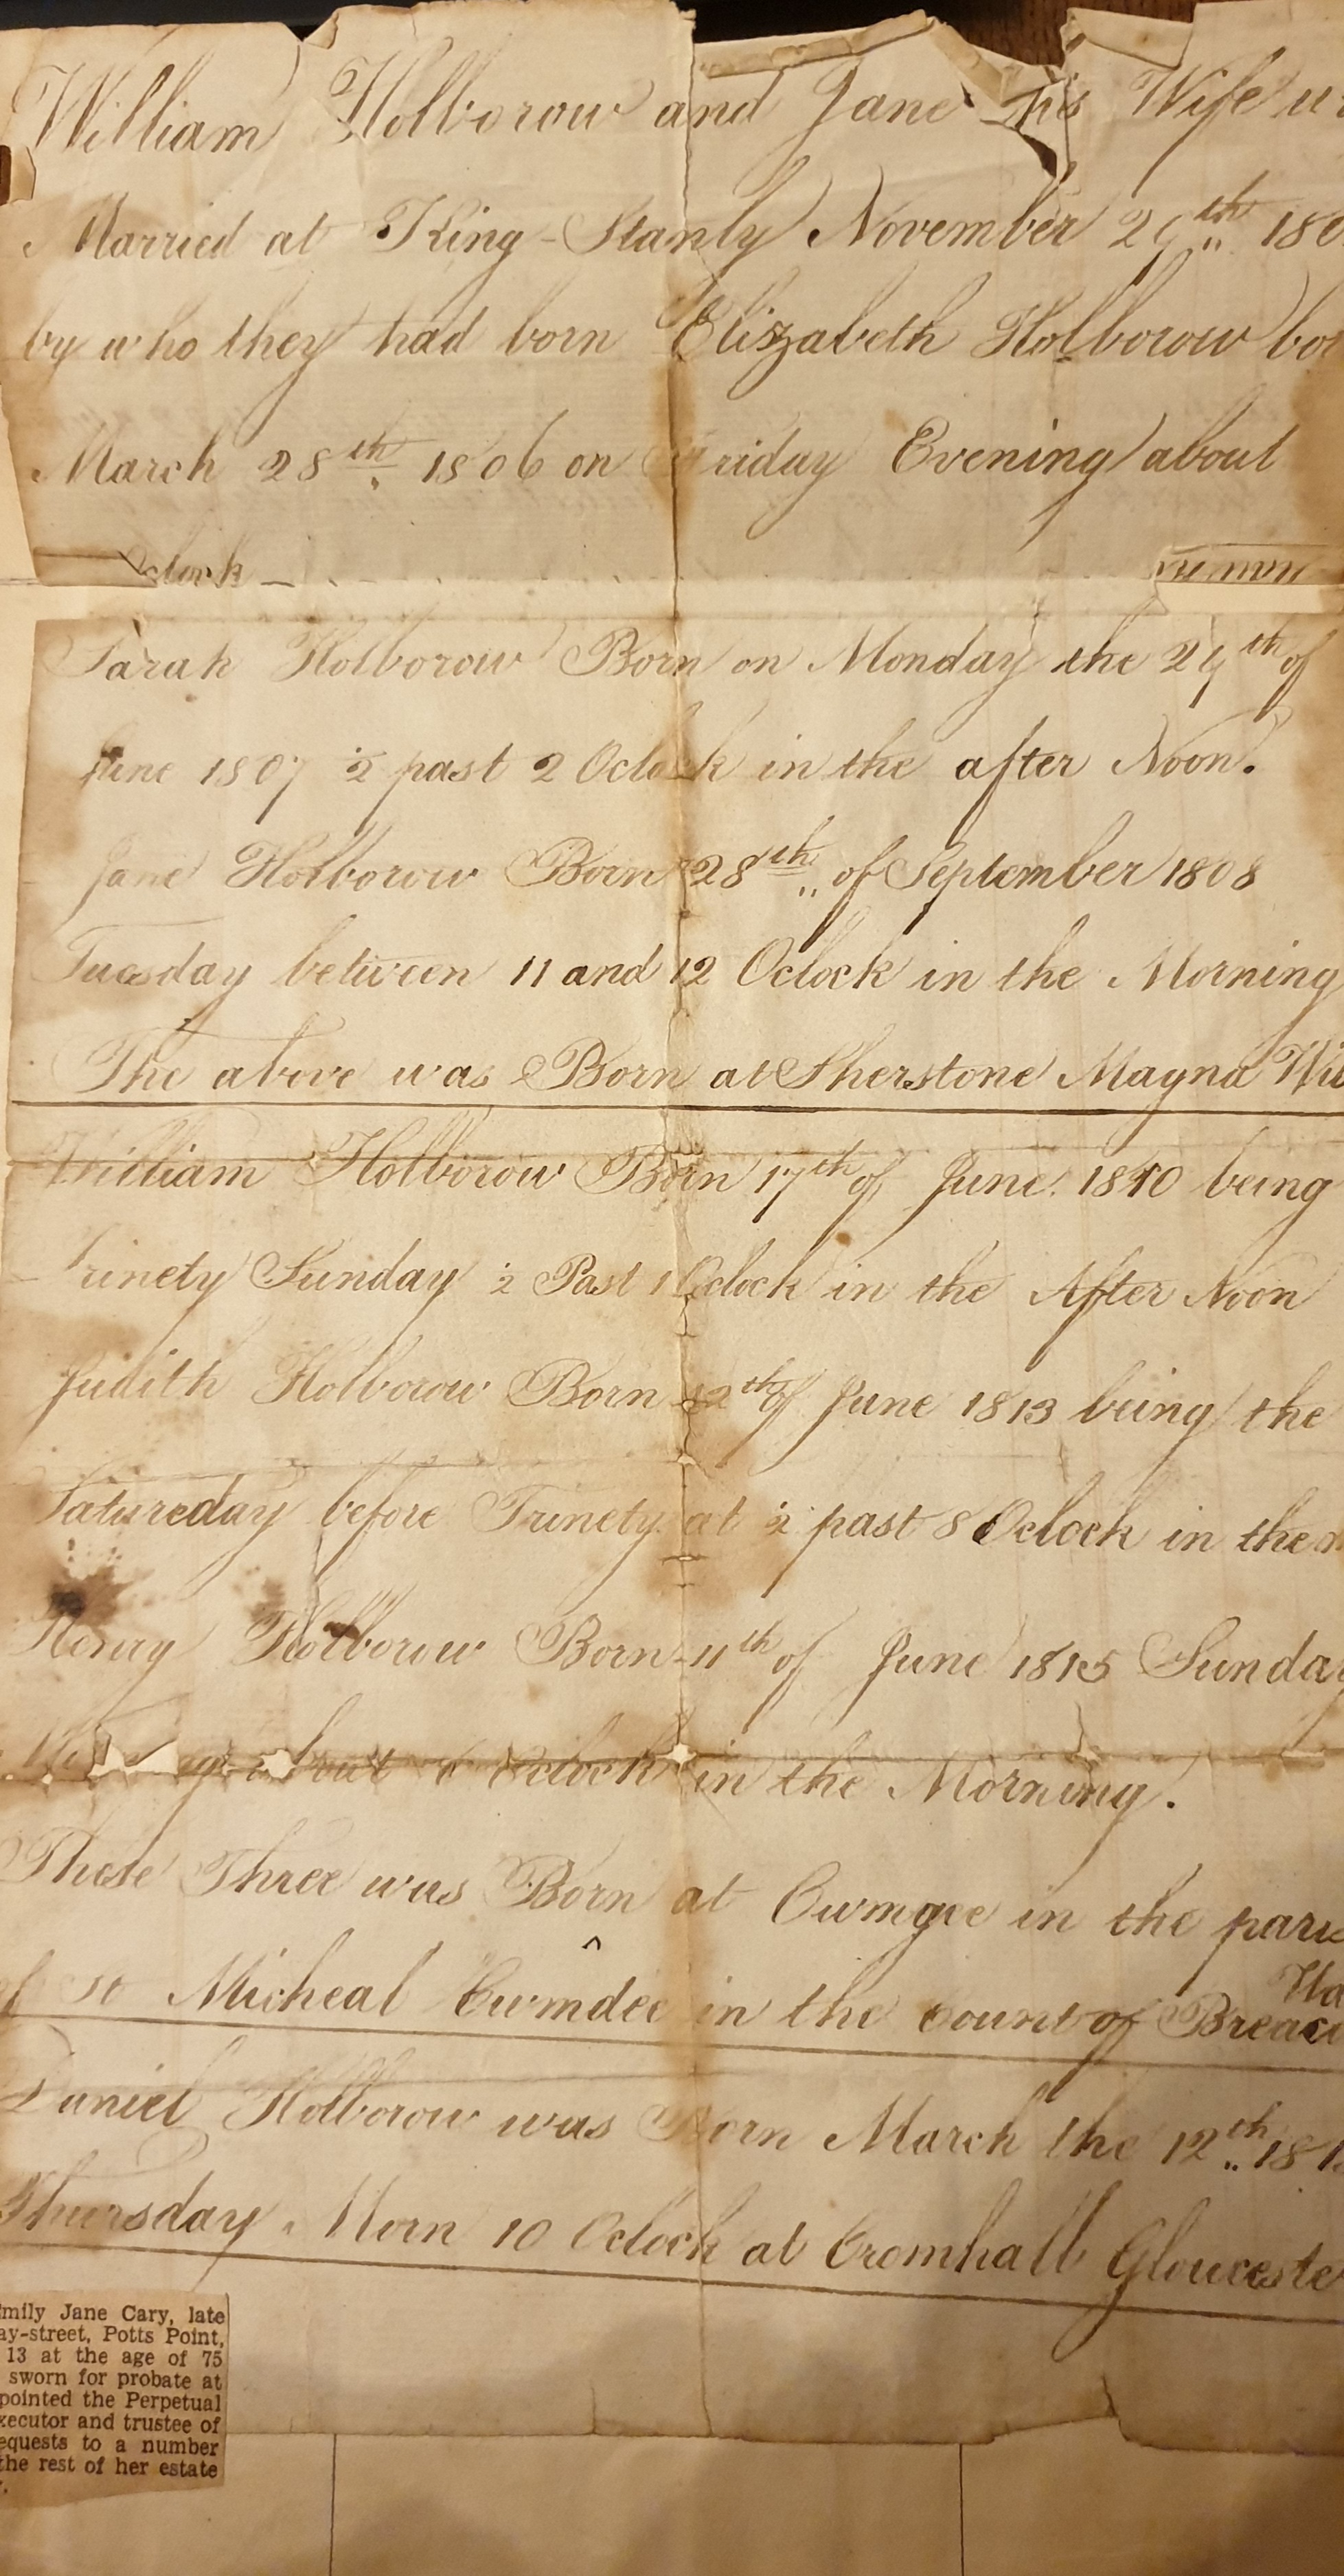 William Holborow and Jane his Wife w
Married at King-Stanly November 29th 180
by who they had born Elizabeth Holborow bor
March 28th 1806 on Friday Evening about
Oclock
Sarah Holborow Born on Monday the 29th of
June 1807 ½ past 2 Oclock in the after Noon.
Jane Holborow Born 28th of September 1808
Tuesday between 11 and 12 Oclock in the Morning
The above was Born at Sherstone Magna Wil
William Holborow Born 17th of June 1810 being
Trinety Sunday ½ Past 1 Oclock in the After Noon
Judith Holborow Born 12th of June 1813 being the
Satureday before Trinety at ½ past 8 Oclock in the
Henry Holborow Born 11th of June 1815 Sunday
about 6 Oclock in the Morning.
These Three was Born at Cwmgce in the paris
of St Micheal Cwmdee in the Count of Breac
Daniel Holborow was Born March the 12th 181
Thursday Morn 10 Oclock at Cromhall Glouceste
mily Jane Cary, late
ay-street, Potts Point,
13 at the age of 75
sworn for probate at
pointed the Perpetual
xecutor and trustee of
equests to a number
the rest of her estate